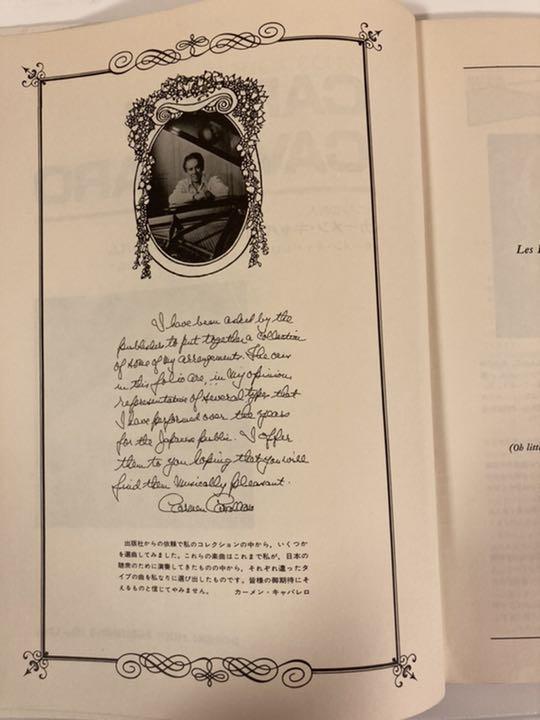 I have been asked by the
publisher to put together a collection
of some of my arrangements. The ones
in this folio are, in my opinion,
representative of several types that
I have performed over the years
for the Japanese public. I offer
them to you hoping that you will
find them musically pleasant.
Carmen Cavallaro
出版社からの依頼で私のコレクションの中から、いくつか
を選曲してみました。これらの楽曲はこれまで私が、日本の
聴衆のために演奏してきたものの中から、それぞれ違ったタ
イプの曲を私なりに選び出したものです。皆様の御期待にそ
えるものと信じてやみません。 カーメン・キャバレロ
Les
(Oh litt